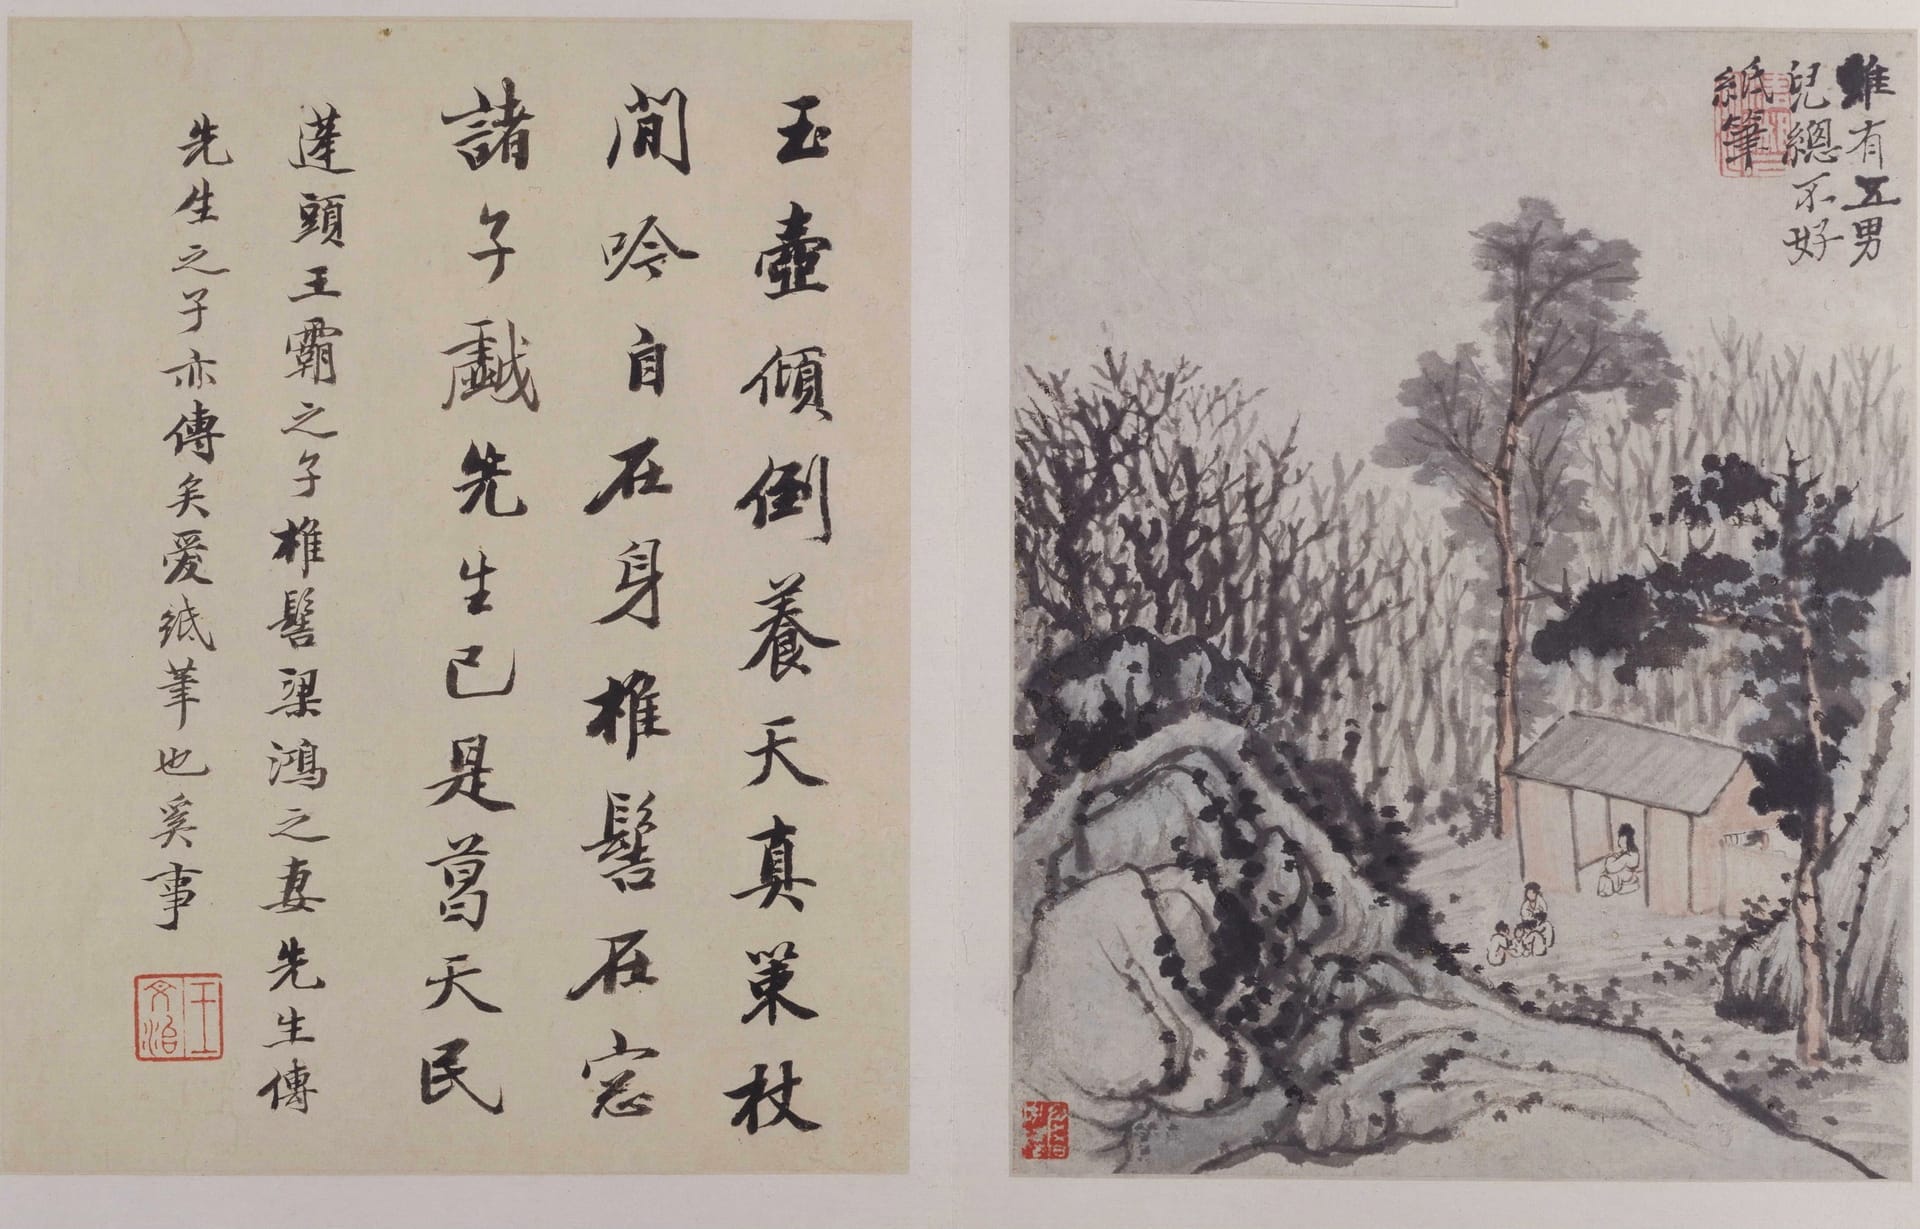 雖有五男
兒總不好
紙筆
玉壺傾倒養天真策杖
閒吟自在身椎髻在窓
諸子戲先生已是葛天民
蓬頭王霸之子椎髻梁鴻之妻先生傳
先生之子亦傳矣愛紙筆也奚事
王文治